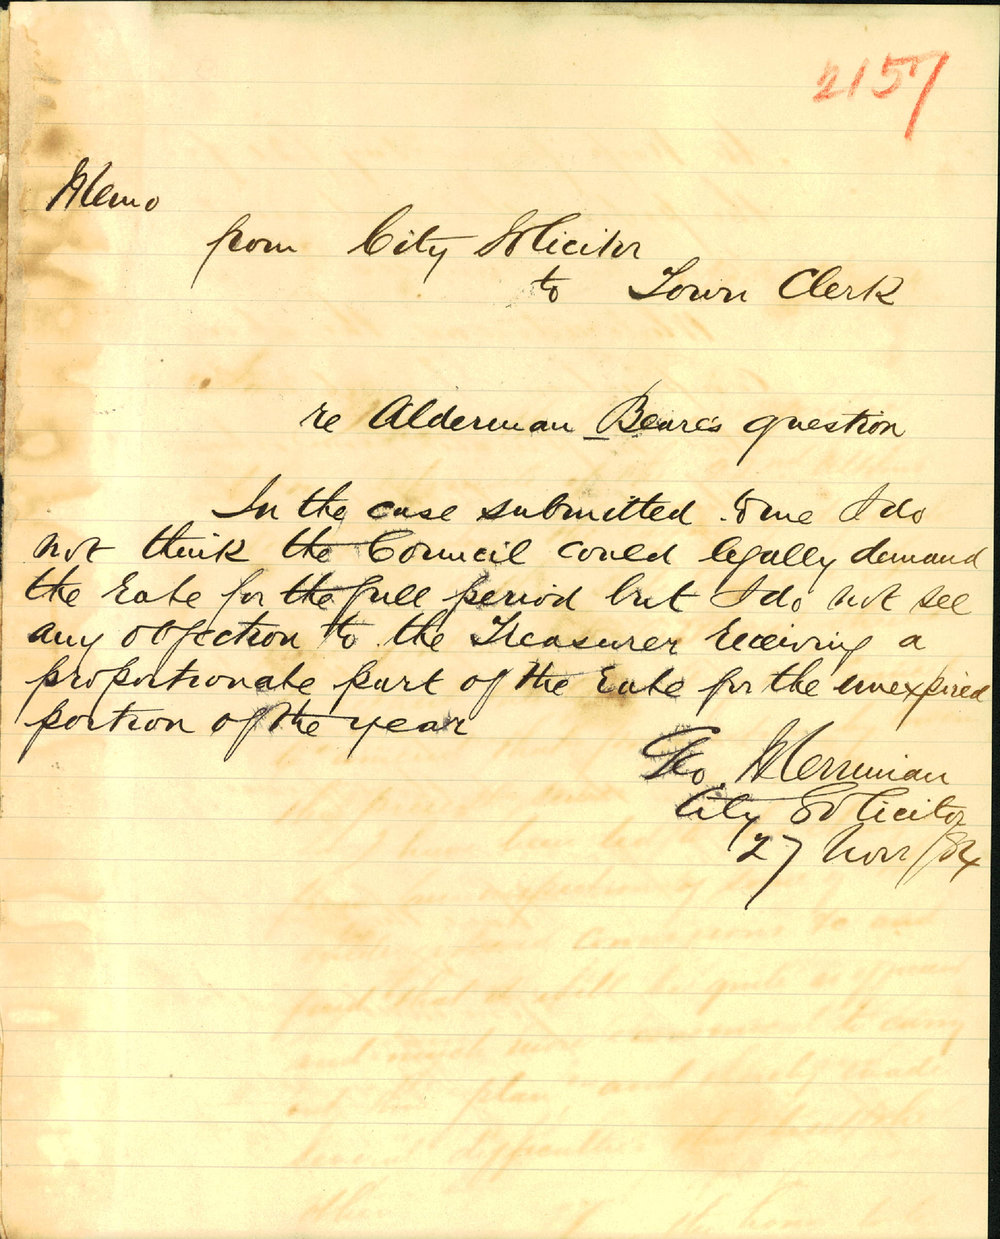 2157
Memo
from City Solicitor
to Town Clerk
re Alderman Beare's question
In the case submitted to me I do
not think the Council could legally demand
the rate for the full period but I do not see
any objection to the Treasurer receiving a
proportionate part of the rate for the unexpired
portion of the year
Geo. Merriman
City Solicitor
27 Novr /84